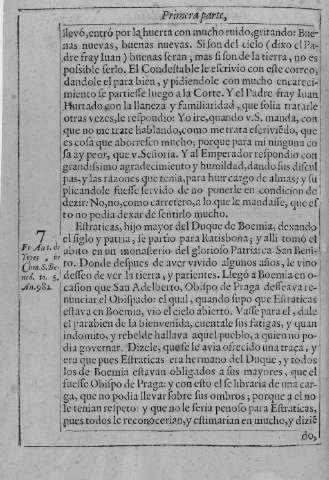 Primera parte,
llevó, entró por la huerta con mucho ruido, gritando: Bue-
nas nuevas, buenas nuevas. Si son del cielo (dixo el Pa-
dre fray Iuan) buenas seran, mas si son de la tierra, no es
possible serlo. El Condestable le escrivio con este correo,
dandole el para bien, y pidiendole con mucho encareci-
miento se partiesse luego a la Corte. Y el Padre fray Iuan
Hurtado, con la llaneza y familiaridad, que solia tratarle
otras vezes, le respondio: Yo ire, quando v.S. manda, con
que no me trate hablando, como me trata escriviẽdo, que
es cosa que aborresco mucho; porque para mi ninguna co
sa ay peor, que v.Señoria. Y al Emperador respondio con
grandissimo agradecimiento y humildad, dando sus discul
pas, y las razones que tenia, para huir cargo de almas; y su
plicandole fuesse servido de no ponerle en condicion de
dezir: No, no, como carretero, a lo que le mandasse, que es
to no podia dexar de sentirlo mucho.
Estraticas, hijo mayor del Duque de Boemia, dexando
7
el siglo y patria, se partio para Ratisbona; y alli tomó el
Fr. Ant. de
abito en un monasterio del glorioso Patriarca San Beni-
Yepes, en
to. Donde despues de aver vivido algunos años, le vino
Chro. S. Be.
desseo de ver la tierra, y parientes. Llegó a Boemia en o-
ned. to. 5.
casion que San Adelberto, Obispo de Praga desseava re-
An. 982.
nunciar el Obispado: el qual, quando supo que Estraticas
estava en Boemia, vio el cielo abierto. Vasse para el, dale
el parabien de la bienvenida, cuentale sus fatigas, y quan
indomito, y rebelde hallava aquel pueblo, a quien no po-
dia governar. Dizele, que se le avia ofrecido una traça, y
era que pues Estraticas era hermano del Duque, y todos
los de Boemia estavan obligados a sus mayores, que el
fuesse Obispo de Praga: y con esto el se libraria de una car-
ga, que no podia llevar sobre sus ombros, porque a el no
le tenian respeto: y que no le seria penoso para Estraticas,
pues todos le reconocerian, y estimarian en mucho, y diziẽ
do,